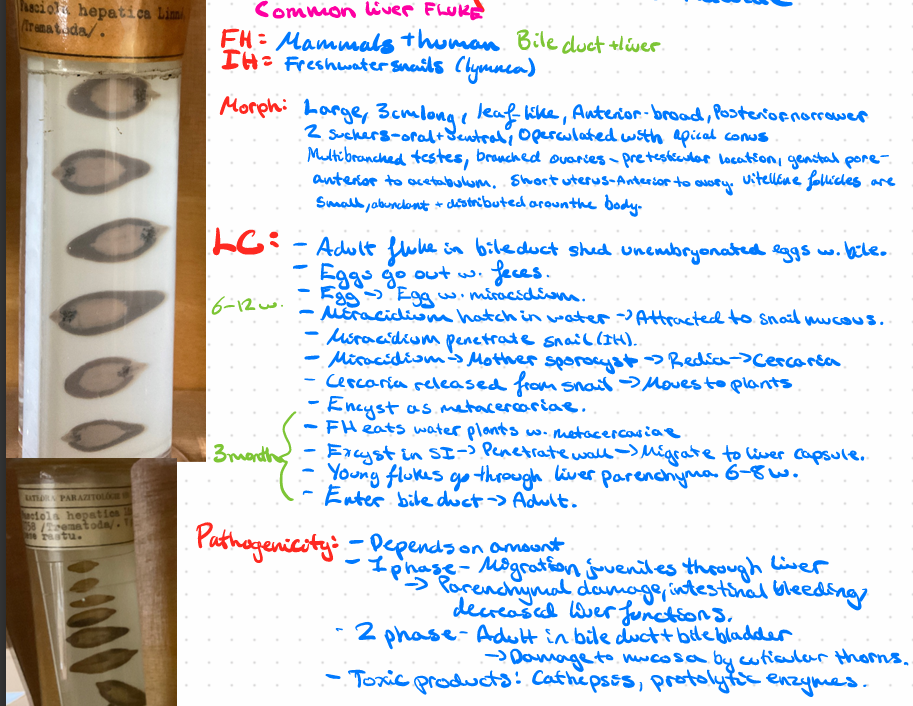 Fasciola hepatica Linné
/Trematoda/.
Common liver Fluke
FH: Mammals + human Bile duct + liver
IH: Freshwater snails (lymnea)
Morph: Large, 3cm long, leaf-like, Anterior-broad, Posterior narrower
2 suckers-oral + ventral, Operculated with apical conus
Multibranched testes, branched ovaries - pretesticular location, genital pore-
anterior to acetabulum. Short uterus-Anterior to ovary. vitelline follicles are
small, abundant + distributed around the body.
LC: - Adult fluke in bile duct shed unembryonated eggs w. bile.
- Eggs go out w. feces.
- Egg -> Egg w. miracidium.
6-12 w.
- Miracidium hatch in water -> Attracted to snail mucous.
- Miracidium penetrate snail (IH).
- Miracidium -> Mother sporocyst -> Redia -> Cercaria
- Cercaria released from snail -> Moves to plants
- Encyst as metacercariae.
- FH eats water plants w. metacercariae
3 month
- Excyst in SI -> Penetrate wall -> Migrate to liver capsule.
- Young flukes go through liver parenchyma 6-8 w.
- Enter bile duct -> Adult.
KATEDRA PARAZITOLÓGIE
Fasciola hepatica
/Trematoda/.
rastu.
Pathogenicity: - Depends on amount
- 1 phase - Migration juveniles through liver
-> Parenchymal damage, intestinal bleeding,
decreased liver functions.
- 2 phase - Adult in bile duct + bile bladder
-> Damage to mucosa by cuticular thorns.
- Toxic products: Cathepsis, protolytic enzymes.